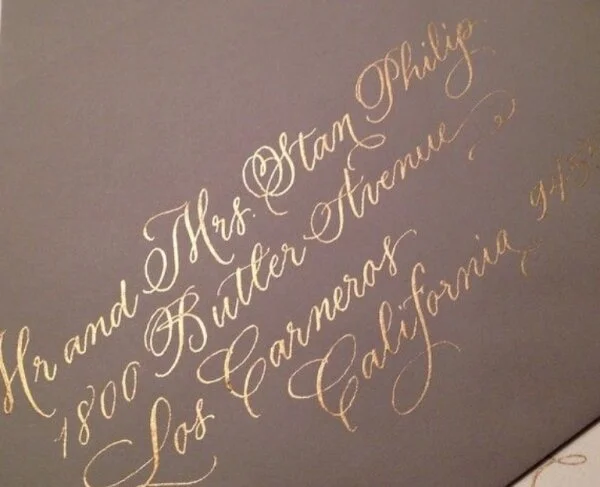 Mr and Mrs. Stan Philip
1800 Butler Avenue
Los Carneros
California